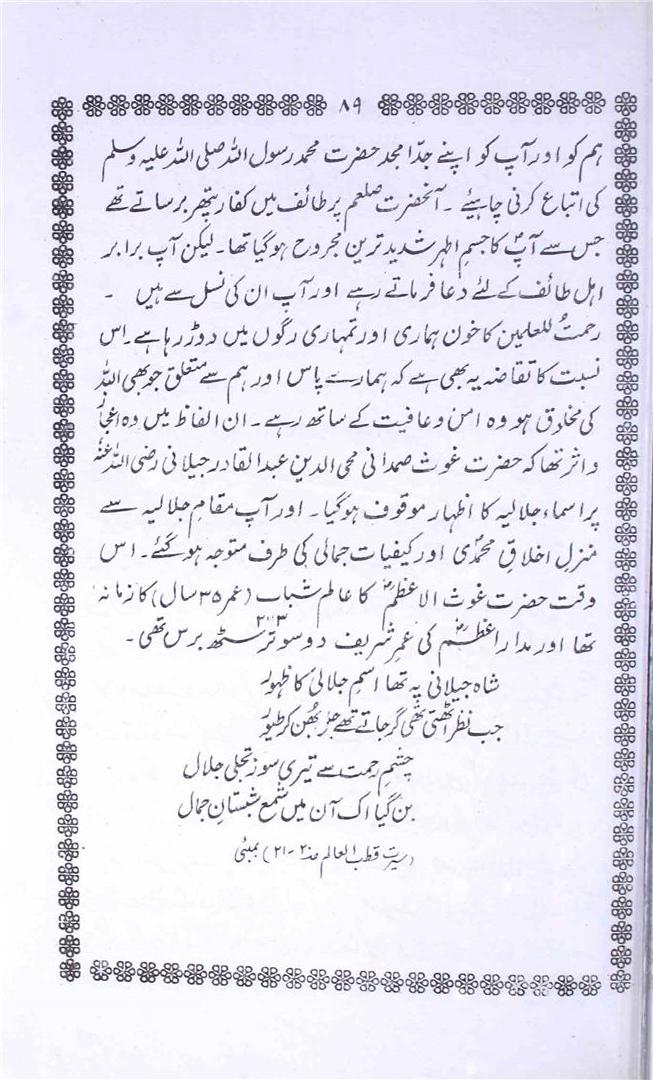 ۸۹
ہم کو اور آپ کو اپنے جدّ امجد حضرت محمد رسول اللہ صلی اللہ علیہ وسلم
کی اتباع کرنی چاہیئے ۔ آنحضرت صلعم پر طائف میں کفار پتھر برساتے تھے
جس سے آپؐ کا جسمِ اطہر شدید ترین مجروح ہوگیا تھا۔ لیکن آپ برابر
اہل طائف کے لئے دعا فرماتے رہے اور آپ ان کی نسل سے ہیں ۔
رحمتُ للعلمین کا خون ہماری اور تمہاری رگوں میں دوڑ رہا ہے۔ اس
نسبت کا تقاضہ یہ بھی ہے کہ ہمارے پاس اور ہم سے متعلق جو بھی اللہ
کی مخلوق ہو وہ امن وعافیت کے ساتھ رہے ۔ ان الفاظ میں وہ اعجاز
واثر تھا کہ حضرت غوث صمدانی محی الدین عبدالقادر جیلانی رضی اللہ عنہ
پر اسماء جلالیہ کا اظہار موقوف ہوگیا۔ اور آپ مقامِ جلالیہ سے
منزلِ اخلاقِ محمدیؐ اور کیفیات جمالی کی طرف متوجہ ہوگئے۔ اس
وقت حضرت غوث الاعظمؓ کا عالمِ شباب (عمر ۳۵ سال) کا زمانہ
تھا اور مدار اعظمؓ کی عمر شریف دو سو ترسٹھ ۲۶۳ برس تھی۔
شاہ جیلانی پہ تھا اسمِ جلالی کا ظہور
جب نظر اٹھتی تھی گر جاتے تھے جل بھن کر طیور
چشمِ رحمت سے تیری سوزِ تجلی جلال
بن گیا اک آن میں شمعِ شبستانِ جمال
(سیرت قطب العالم ص۲۰-۲۱) بمبئی